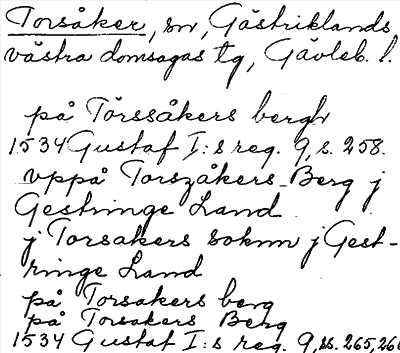 Torsåker, sn, Gästriklands
västra domsagas tg, Gävleb. l.
på Torssåkers bergh
1534 Gustaf I:s reg. 9, s. 258.
vppå Torszåkers-Berg j
Gestringe Land
j Torsakers soknn j Gest-
ringe Land
på Torsakers berg
på Torsakers Berg
1534 Gustaf I:s reg. 9, ss. 265, 266